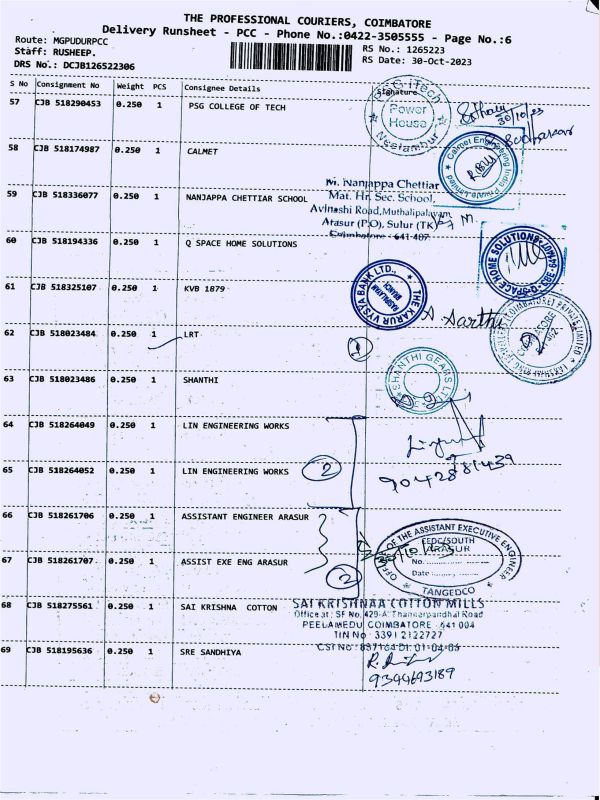 THE PROFESSIONAL COURIERS, COIMBATORE
Delivery Runsheet - PCC - Phone No.:0422-3505555 - Page No.:6
Route: MGPUDURPCC
Staff: RUSHEEP.
DRS No.: DCJB126522306
RS No.: 1265223
RS Date: 30-Oct-2023
S No Consignment No Weight PCS Consignee Details Signature
57 CJB 518290453 0.250 1 PSG COLLEGE OF TECH
PSG iTech
Power
House
Neelambur
30/10/23
58 CJB 518174987 0.250 1 CALMET
Calmet Engineering India Private Limited
59 CJB 518336077 0.250 1 NANJAPPA CHETTIAR SCHOOL
Nanjappa Chettiar
Mat. Hr. Sec. School,
Avinashi Road, Muthalipalayam
Arasur (P.O), Sulur (TK)
Coimbatore - 641-407
60 CJB 518194336 0.250 1 Q SPACE HOME SOLUTIONS
Q-SPACE HOME SOLUTIONS
61 CJB 518325107 0.250 1 KVB 1879
THE KARUR VYSYA BANK LTD.,
BRANCH
Sarthi
62 CJB 518023484 0.250 1 LRT
1
COIMBATORE
PRIVATE LIMITED
63 CJB 518023486 0.250 1 SHANTHI
SHANTHI GEARS LTD
64 CJB 518264049 0.250 1 LIN ENGINEERING WORKS
65 CJB 518264052 0.250 1 LIN ENGINEERING WORKS
2
9042881439
66 CJB 518261706 0.250 1 ASSISTANT ENGINEER ARASUR
67 CJB 518261707 0.250 1 ASSIST EXE ENG ARASUR
2
OFFICE OF THE ASSISTANT EXECUTIVE ENGINEER
CEDC/SOUTH
ARASUR
No.
Date
TANGEDCO
68 CJB 518275561 0.250 1 SAI KRISHNA COTTON
SAI KRISHNAA COTTON MILLS
Office at : SF No. 429-A Thanneerpandhal Road
PEELAMEDU COIMBATORE - 641 004
TIN No 3391 2122727
CST No : 837164 Dt. 01-04-06
69 CJB 518195636 0.250 1 SRE SANDHIYA
9344693189